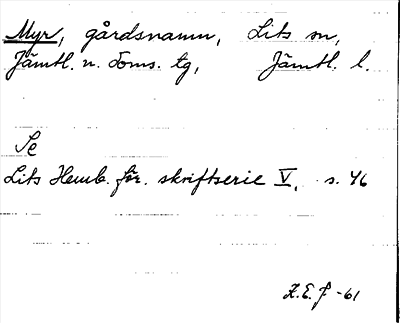 Myr, gårdsnamn, Lits sn,
Jämtl. n. doms. tg, Jämtl. l.
Se
Lits Hemb. för. skriftserie V, s. 46
Z.E.F -61